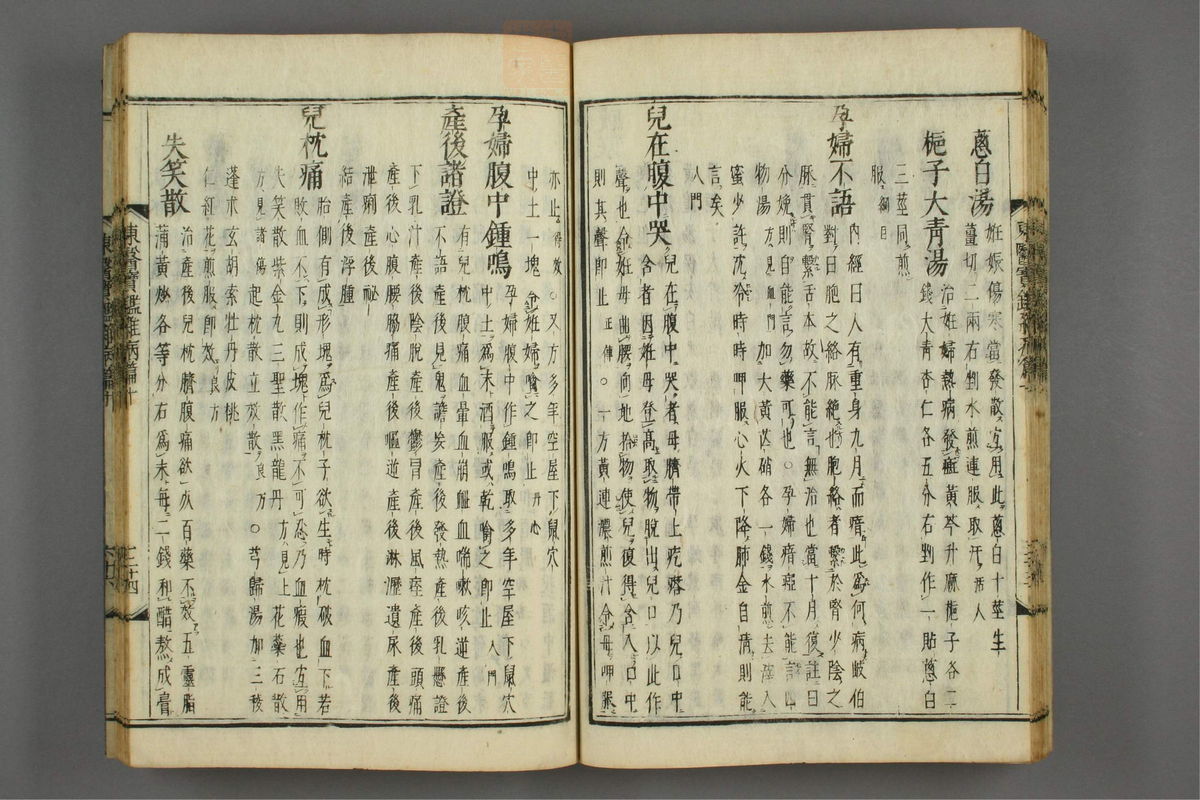 葱白湯 妊娠傷寒當發散宜用此葱白十莖生
薑切二兩右剉水煎連服取汗活人
梔子大靑湯 治妊婦熱病發斑黃芩升麻梔子各二
錢大靑杏仁各五分右剉作一貼葱白
三莖同煎
服綱目
孕婦不語 內經曰人有重身九月而瘖此爲何病岐伯
對曰胞之絡脉絶也胞絡者繫於腎少陰之
脉貫腎繫舌本故不能言無治也當十月復註曰
分娩則自能言勿藥可也○孕婦瘖瘂不能言四
物湯方見血門加大黃芒硝各一錢水煎去滓入
蜜少許沈冷時時呷服心火下降肺金自淸則能
言矣
入門
兒在腹中哭 兒在腹中哭者母臍帶上疙瘩乃兒口中
含者因妊母登高取物脫出兒口以此作
聲也令妊母曲腰向地拾物使兒復得含入口中
則其聲卽止正傳○一方黃連濃煎汁令母呷之
亦止得效○又方多年空屋下鼠穴
中土一塊令妊婦噙之卽止丹心
孕婦腹中鍾鳴 孕婦腹中作鍾鳴取多年空屋下鼠穴
中土爲末酒服或乾噙之卽止入門
產後諸證 有兒枕腹痛血暈血崩衂血喘嗽咳逆產後
不語產後見鬼譫妄產後發熱產後乳懸證
下乳汁產後陰脫產後鬱冒產後風痓產後頭痛
產後心腹腰脇痛產後嘔逆產後淋瀝遺尿產後
泄痢產後秘
結產後浮腫
兒枕痛 胎側有成形塊爲兒枕子欲生時枕破血下若
敗血不下則成塊作痛不可忍乃血瘕也宜用
失笑散紫金丸三聖散黑龍丹方見上花蘂石散
方見諸傷起枕散立效散良方○芎歸湯加三稜
蓬朮玄胡索牡丹皮桃
仁紅花煎服卽效良方
失笑散 治產後兒枕臍腹痛欲死百藥不效五靈脂
蒲黃炒各等分右爲末每二錢和醋熬成膏
東醫寶鑑雜病篇十
二十四